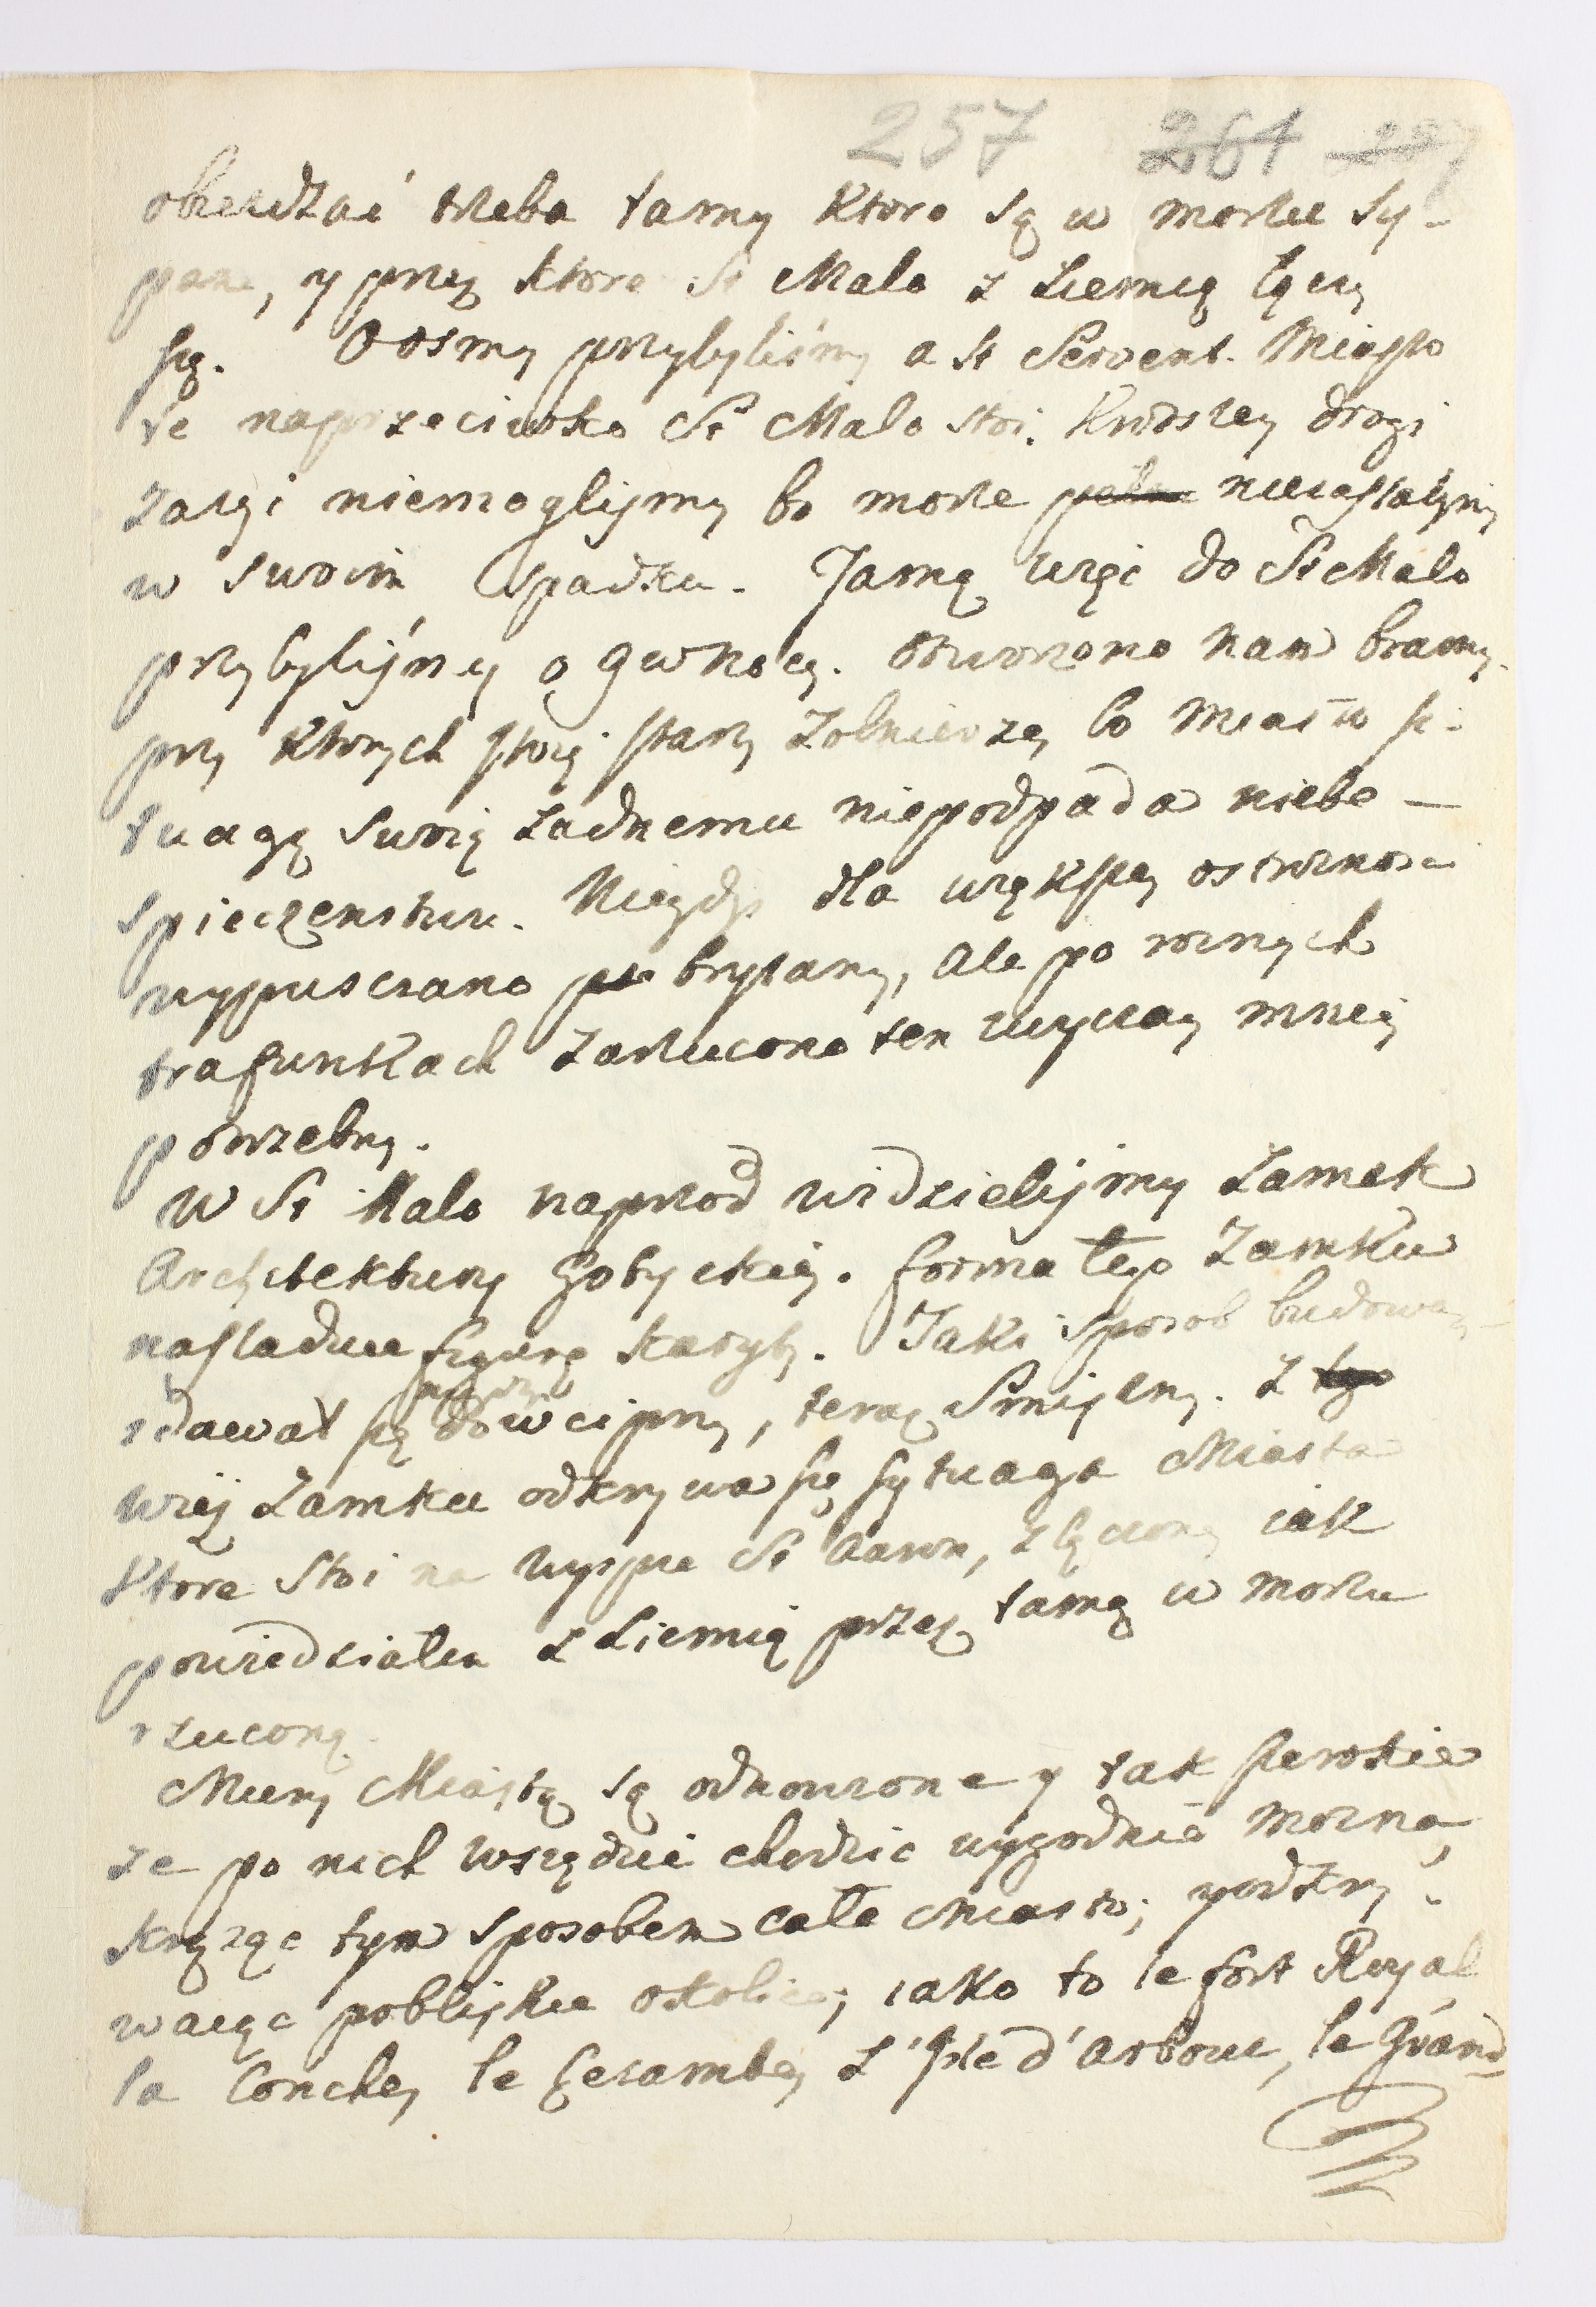 257 264 257
obieżdżać trzeba tamy ktore są w morzu sy-
pane, y przez ktore St Malo z Ziemią łączy
się. O osmy przybyliśmy a St Servent. Miasto
te naprzeciwko St Malo stoi. Krodszey drogi
zażyć niemogliśmy bo morze niezastalismy
w swoim spadku. Tamą więc do St Malo
przybyliśmy o 9 w nocy. Otworzono nam bramy,
przy ktorych stoią starzy Zolnierze, bo Miasto si-
tuagą swoią żadnemu niepodpada niebe-
spieczenstwu. Niegdys dla większey ostrożnosci
wypuszczano psa brytany, ale po roznych
trafunkach zarzucono ten zwyczay mniey
potrzebny.
W St Malo naprzod widzieliśmy Zamek
Architektury Gotyckiey. forma tego Zamku
nasladuie figurę karyty. Taki sposob budowy
zdawał się dowcipny, teraz smieszny. Z tego
wieź Zamku odkrywa się sytuagя Miasta
ktore stoi na wyspie St Aaron, złączoney iak
powiedziałem z Ziemią przez tamę w morzu
rzuconą.
Mury Miasta są odnowione y tak szerokie
ze po nich wszędzie chodzic wygodnie mozna,
krążąc tym sposobem całe Miasto; y odkry-
waiąc pobliskie okolice; iako to le fort Royal
la Conchey le Cesambey L'Isle d'Arbour, le Grand